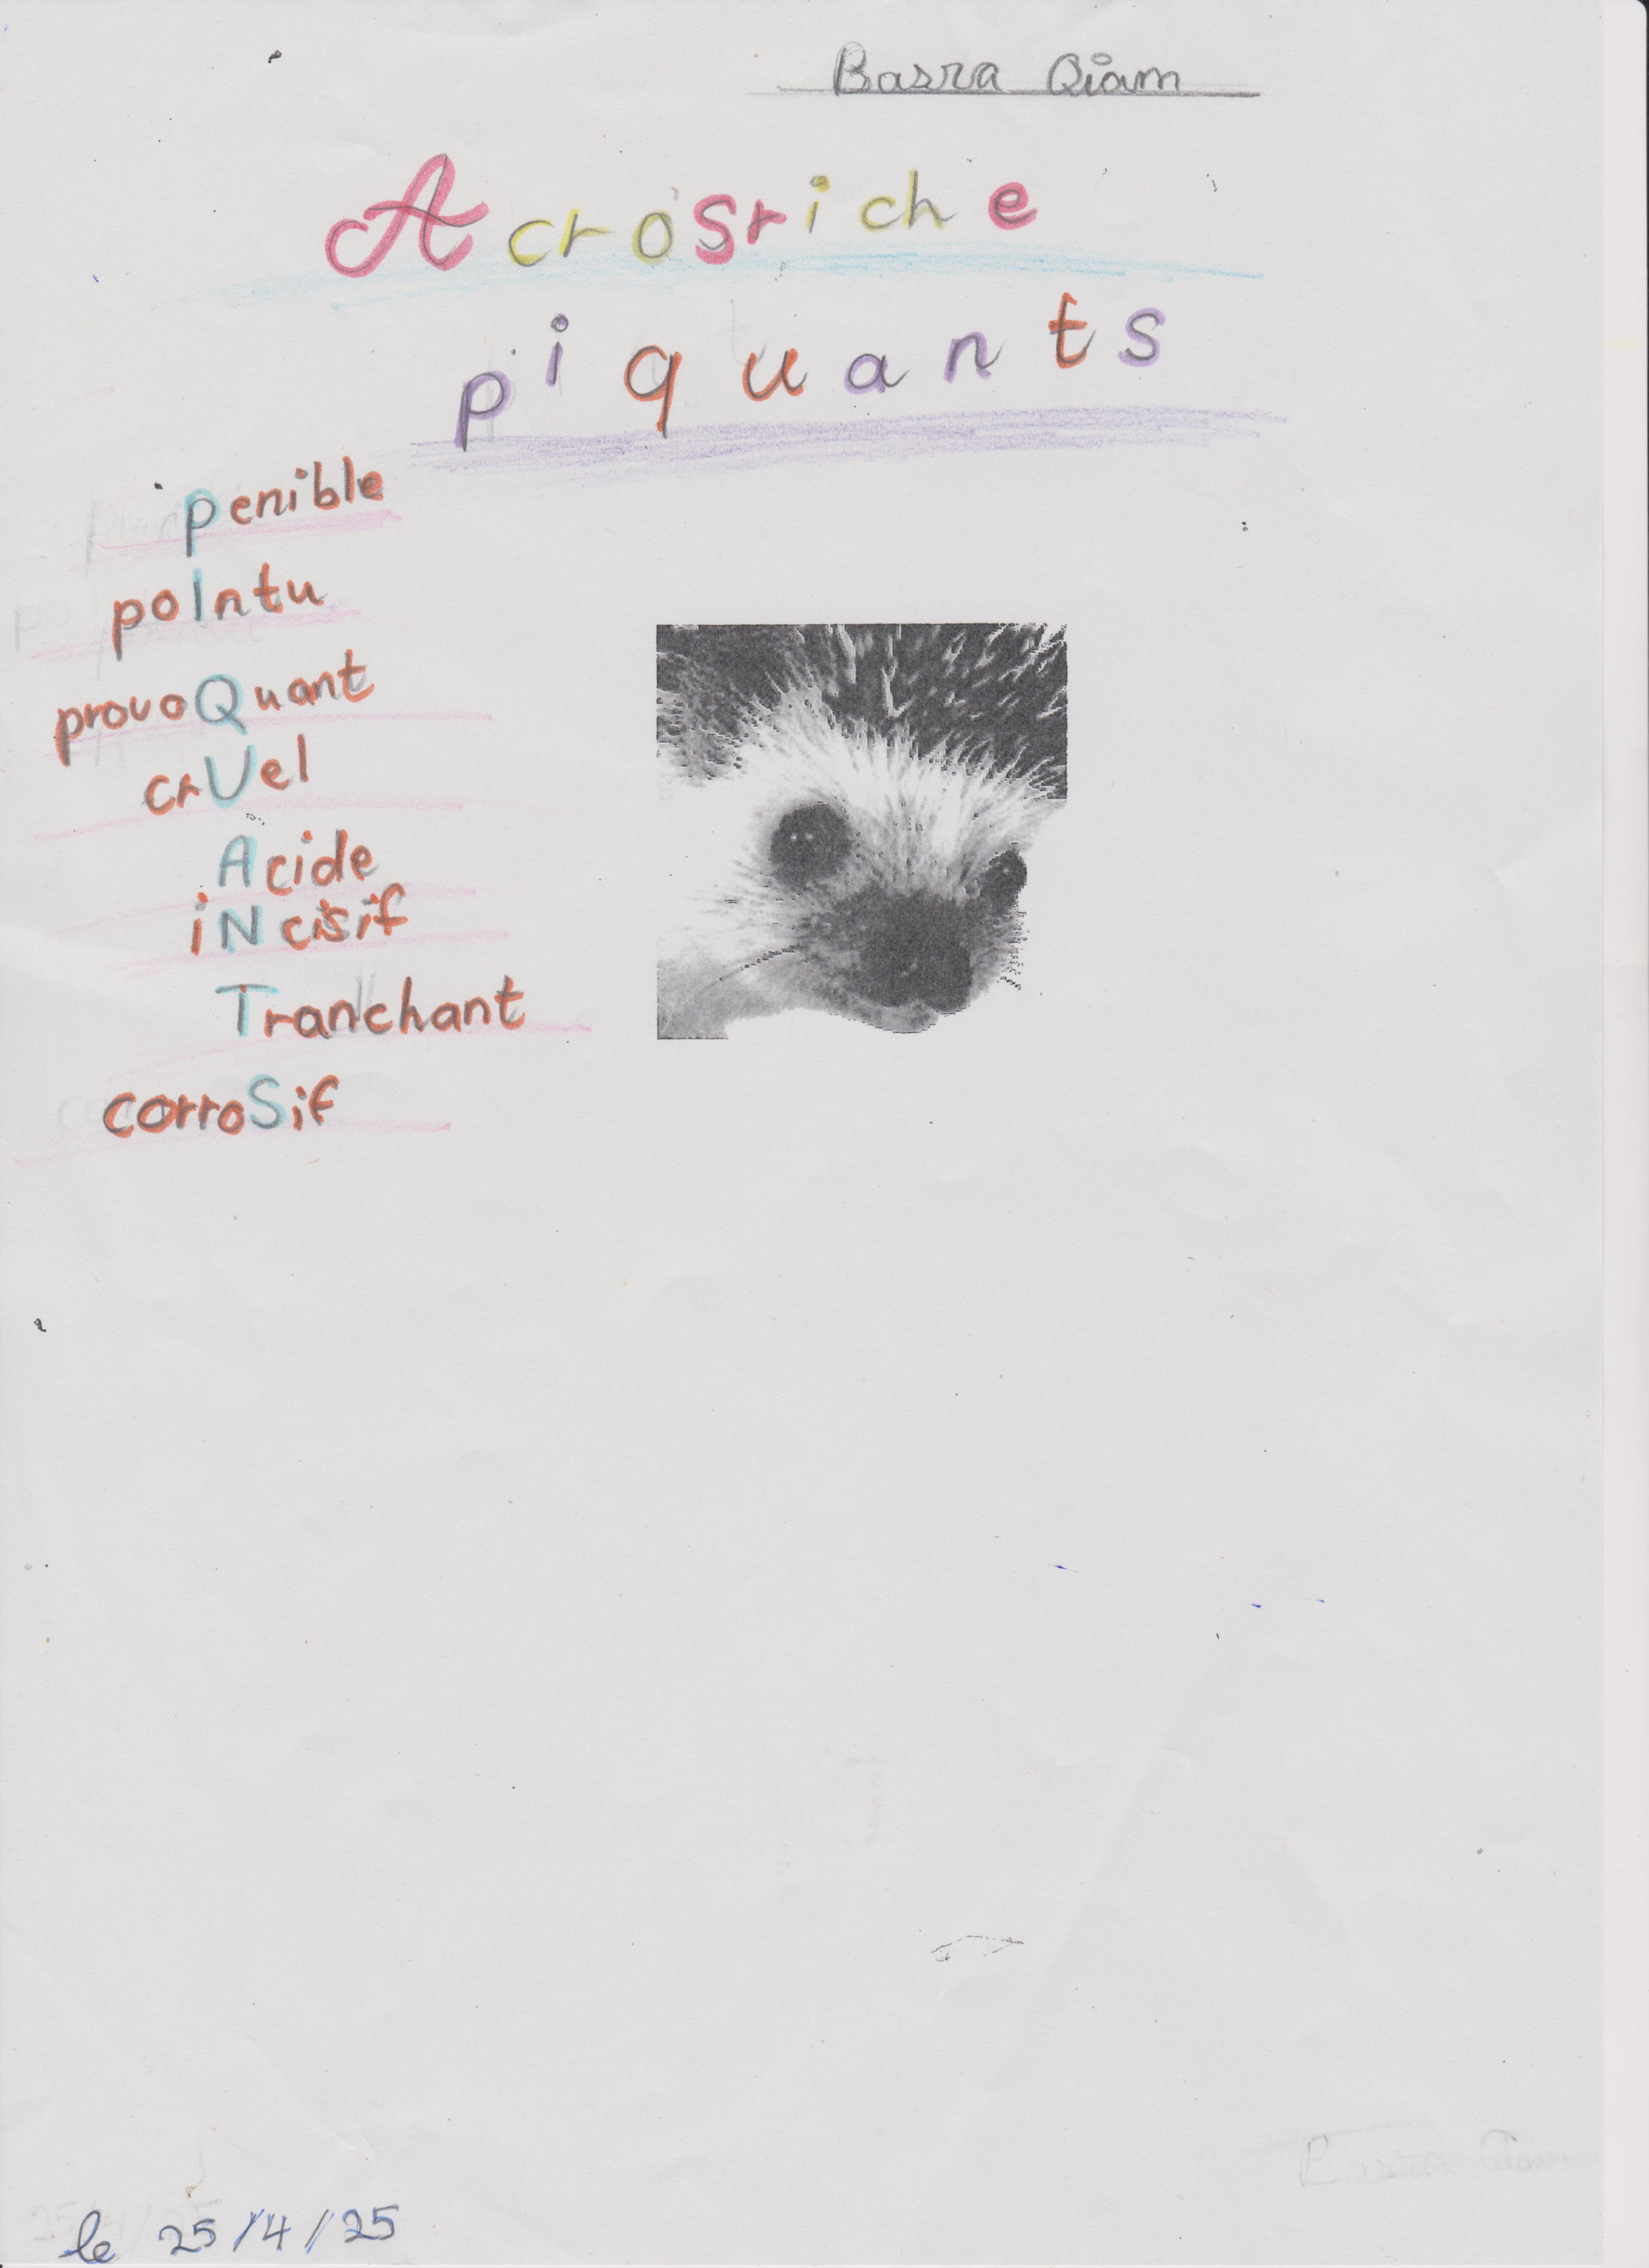 Basra Qiam
Acrosriche
piquants
penible
poIntu
provoQuant
crUel
Acide
iNcisif
Tranchant
corroSif
Basra Qiam
le 25/4/25